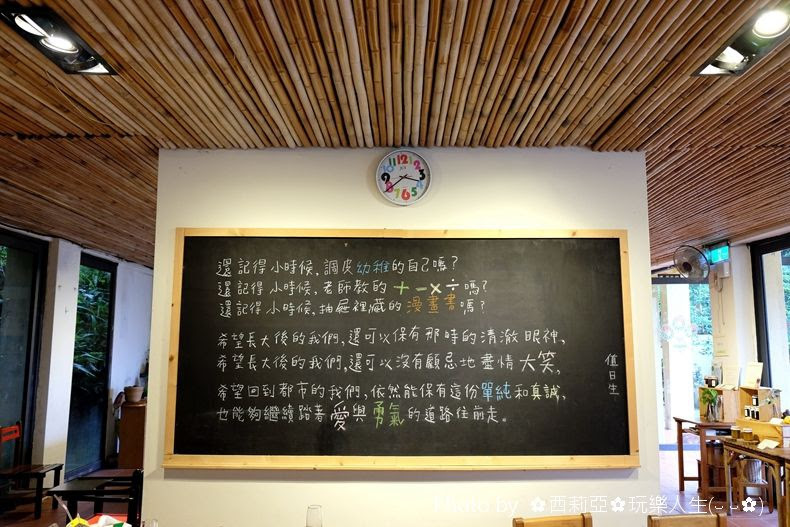 還記得小時候,調皮幼稚的自己嗎?
還記得小時候,老師教的+-×÷嗎?
還記得小時候,抽屜裡藏的漫畫書嗎?
希望長大後的我們,還可以保有那時的清澈眼神,
希望長大後的我們,還可以沒有顧忌地盡情大笑,
希望回到都市的我們,依然能保有這份單純和真誠,
也能夠繼續踏著愛與勇氣的道路往前走。
值日生
Photo by ✿西莉亞✿玩樂人生(ᴗ ᴗ✿)